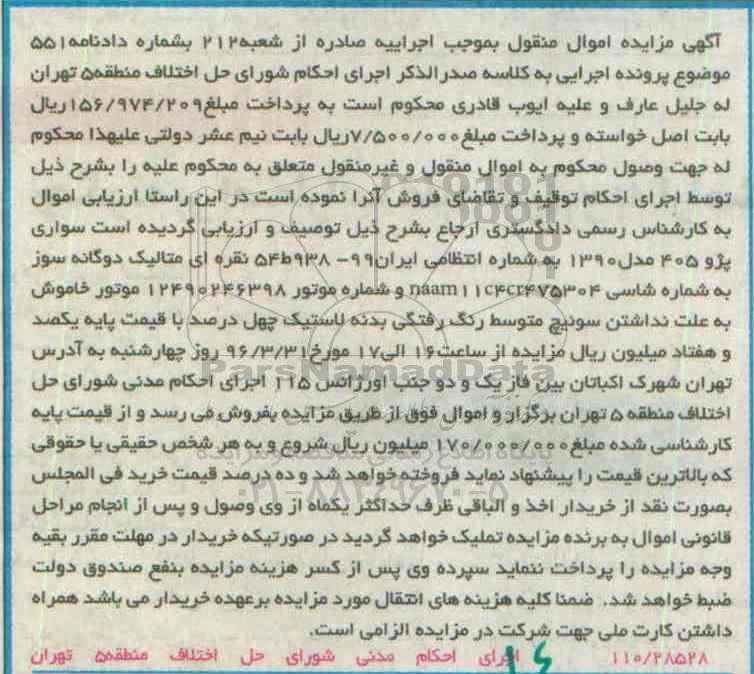 آگهی مزایده اموال منقول بموجب اجراییه صادره از شعبه۲۱۲ بشماره دادنامه۵۵۱
موضوع پرونده اجرایی به کلاسه صدرالذکر اجرای احکام شورای حل اختلاف منطقه۵ تهران
له جلیل عارف و علیه ایوب قادری محکوم است به پرداخت مبلغ۱۵۶/۹۷۴/۲۰۹ریال
بابت اصل خواسته و پرداخت مبلغ۷/۵۰۰/۰۰۰ریال بابت نیم عشر دولتی علیهذا محکوم
له جهت وصول محکوم به اموال منقول و غیرمنقول متعلق به محکوم علیه را بشرح ذیل
توسط اجرای احکام توقیف و تقاضای فروش آنرا نموده است در این راستا ارزیابی اموال
به کارشناس رسمی دادگستری ارجاع بشرح ذیل توصیف و ارزیابی گردیده است سواری
پژو ۴۰۵ مدل۱۳۹۰ به شماره انتظامی ایران۹۹- ۹۳۸ط۵۴ نقره ای متالیک دوگانه سوز
به شماره شاسی naam۱۱c۴cr۴۷۵۳۰۴ و شماره موتور ۱۲۴۹۰۲۴۶۳۹۸ موتور خاموش
به علت نداشتن سوئیچ متوسط رنگ رفتگی بدنه لاستیک چهل درصد با قیمت پایه یکصد
و هفتاد میلیون ریال مزایده از ساعت۱۶ الی۱۷ مورخ۹۶/۳/۳۱ روز چهارشنبه به آدرس
تهران شهرک اکباتان بین فاز یک و دو جنب اورژانس ۱۱۵ اجرای احکام مدنی شورای حل
اختلاف منطقه ۵ تهران برگزار و اموال فوق از طریق مزایده بفروش می رسد و از قیمت پایه
کارشناسی شده مبلغ۱۷۰/۰۰۰/۰۰۰ میلیون ریال شروع و به هر شخص حقیقی یا حقوقی
که بالاترین قیمت را پیشنهاد نماید فروخته خواهد شد و ده درصد قیمت خرید فی المجلس
بصورت نقد از خریدار اخذ و الباقی ظرف حداکثر یکماه از وی وصول و پس از انجام مراحل
قانونی اموال به برنده مزایده تملیک خواهد گردید در صورتیکه خریدار در مهلت مقرر بقیه
وجه مزایده را پرداخت ننماید سپرده وی پس از کسر هزینه مزایده بنفع صندوق دولت
ضبط خواهد شد. ضمنا کلیه هزینه های انتقال مورد مزایده برعهده خریدار می باشد همراه
داشتن کارت ملی جهت شرکت در مزایده الزامی است.
۱۱۰/۲۸۵۲۸ اجرای احکام مدنی شورای حل اختلاف منطقه۵ تهران
ParsNamadData
۰۲۱-۸۸۳۴۹۶۷۰-۵